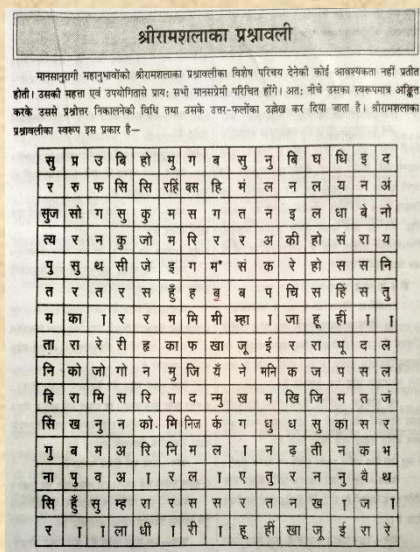 श्रीरामशलाका प्रश्नावली
मानसानुरागी महानुभावोंको श्रीरामशलाका प्रश्नावलीका विशेष परिचय देनेकी कोई आवश्यकता नहीं प्रतीत
होती। उसकी महत्ता एवं उपयोगितासे प्रायः सभी मानसप्रेमी परिचित होंगे। अतः नीचे उसका स्वरूपमात्र अङ्कित
करके उससे प्रश्नोत्तर निकालनेकी विधि तथा उसके उत्तर-फलोंका उल्लेख कर दिया जाता है। श्रीरामशलाका
प्रश्नावलीका स्वरूप इस प्रकार है—
सु प्र उ बि हो मु ग ब सु नु बि घ धि इ द
र रु फ सि सि रहिं बस हि मं ल न ल य न अं
सुज सो ग सु कु म स ग त न इ ल धा बे नो
त्य र न कु जो म रि र र अ की हो सं रा य
पु सु थ सी जे इ ग म* सं क रे हो स स नि
त र त र स हुँ ह ब ब प चि स हिं स तु
म का ा र र म मि मी म्हा ा जा हू हीं ा ा
ता रा रे री हृ का फ खा जू ई र रा पू द ल
नि को जो गो न मु जि यँ ने मनि क ज प स ल
हि रा मि स रि ग द न्मु ख म खि जि म त जं
सिं ख नु न को मि निज र्क ग धु ध सु का स र
गु ब म अ रि नि म ल ा न ढ़ ती न क भ
ना पु व अ ा र ल ा ए तु र न नु वै थ
सि हुँ सु म्ह रा र स स र त न ख ा ज ा
र ा ा ला धी ा री ा हू हीं खा जू ई रा रे